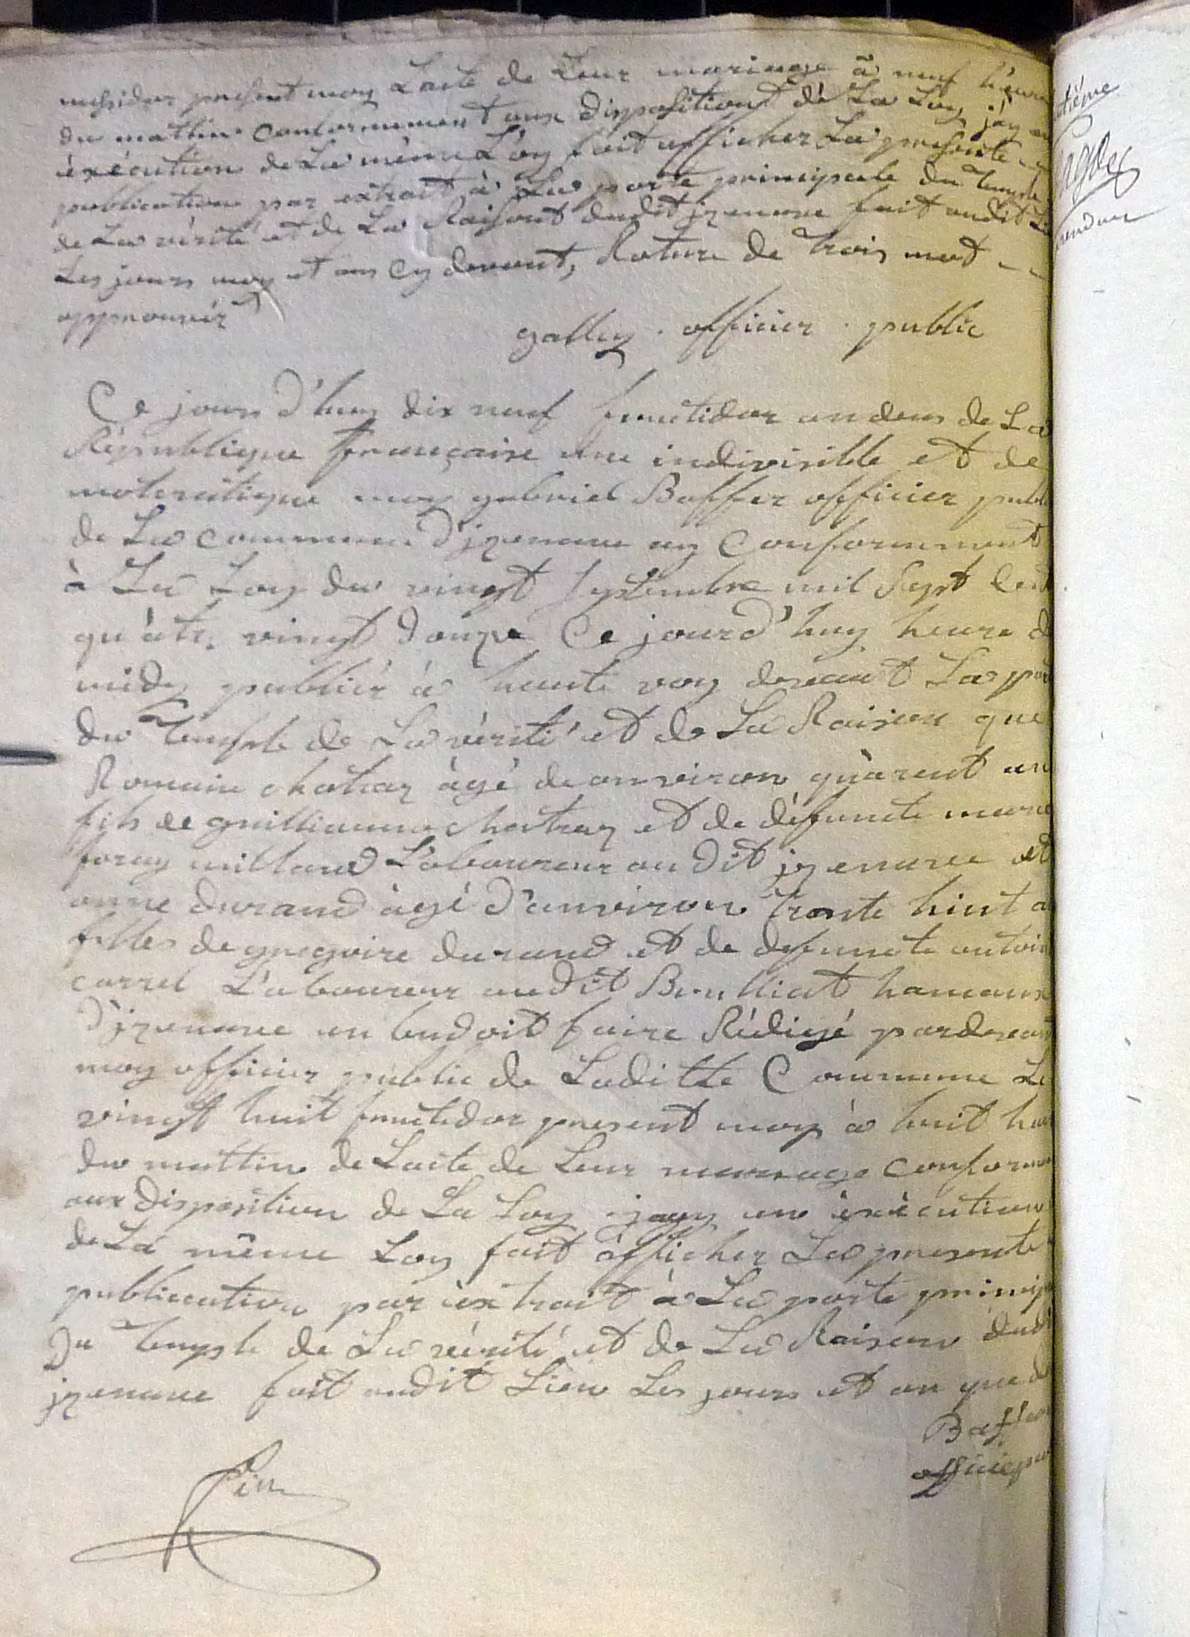 messidor present moy Lacte de Leur mariage à neuf heure
du mattin Conformement aux dispositions de La Loy jay en
éxécution de La même Loy fait afficher La presente
publication par extrait à La porte principale du temple
de La vérité et de La Raison dudit jzenave fait audit
Les jours moy et an Cy devant, Rature de trois mot
approuvér
galley officier public
Ce jourd'huy dix neuf fructidor an deux de La
République française une indivisible et de
mocratique moy gabriel Baffer officier publ
de La commune d'jzenave ay Conformement
à La Loy du vingt septembre mil Sept Cent
quatr. vingt douze Ce jourd'huy heure de
midy publiér à haute voy devant La porte
du temple de La vérité et de La Raison que
Romain chatray àgé de anviron quarent un
fils de guilliaume Chatray et de défuncte marie
Laboureur au dit jzenave et
anne durand àgé d'anviron trante huit a
filles de gregoire durand et de defuncte antoin
carrel Laboureur audit Brulliat hameaux
d'jzenave en tendoit faire Rédigé pardevant
moy officier public de Laditte Commune Le
vingt huit fructidor present moy à huit heu
du mattin de Lacte de Leur mariage conforme
aux disposition de La Loy jayy en éxécution
de La même Loy fait àfficher La presente
publication par éxtrait à La porte princip
du temple de La vérité et de La Raison dudi
jzenave fait audit Lieu Les jours et an que de
Baffer
officier pu
tième